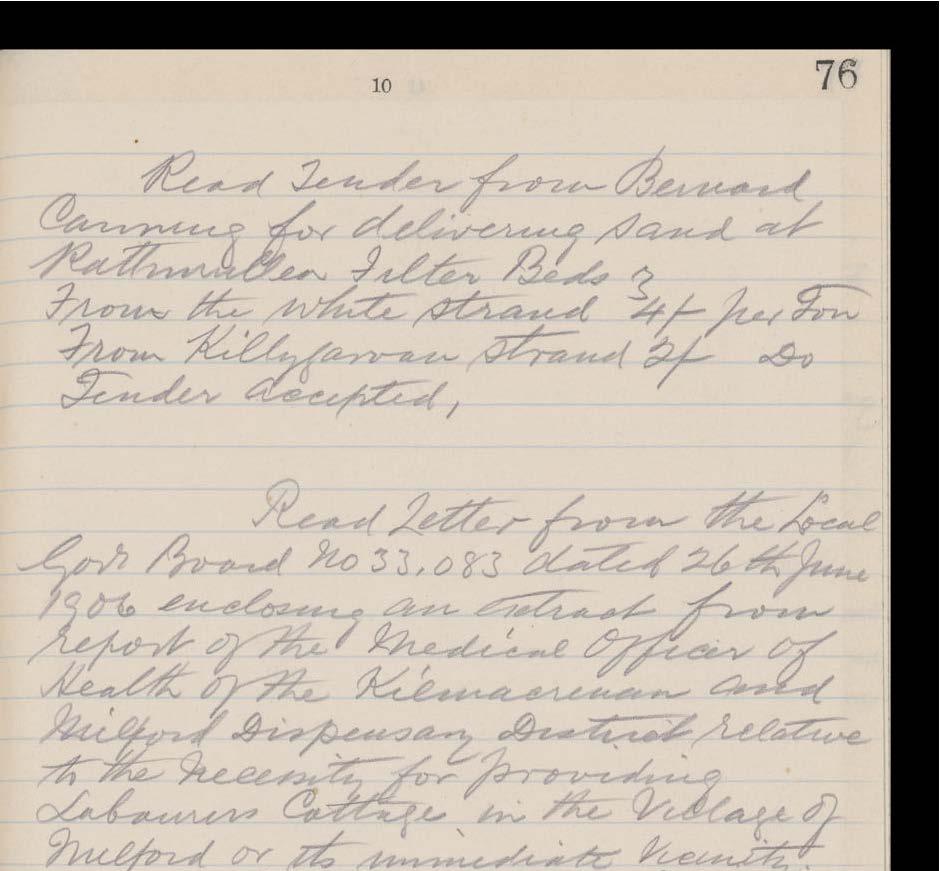 10
76
Read Tender from Bernard
Canning for delivering sand at
Rathmullen Filter Beds 3
From the white strand 4/- per Ton
From Killygarvan Strand 3/- Do
Tender accepted,
Read Letter from the Local
Govt Board No 33,083 dated 26th June
1906 enclosing an extract from
report of the Medical Officer of
Health of the Kilmacrenan and
Milford Dispensary District relative
to the necessity for providing
Labourers Cottage in the Village of
Milford or its immediate Vicinity.